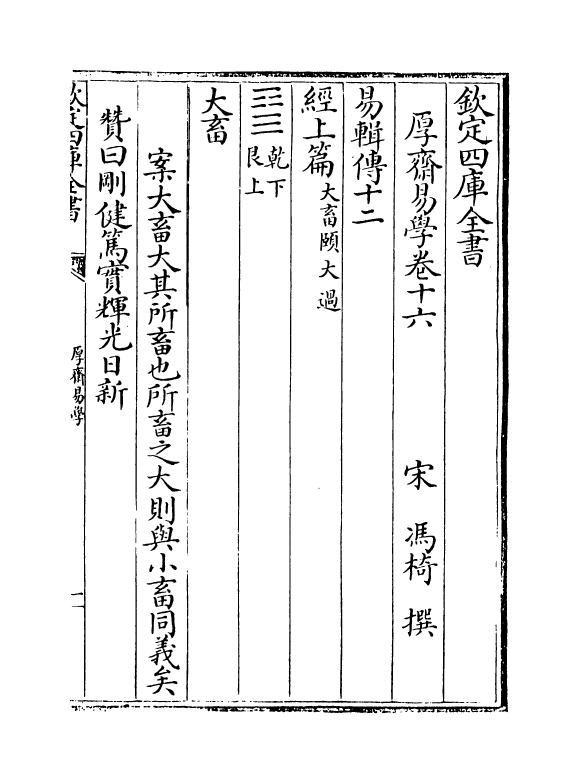 欽定四庫全書
厚齋易學卷十六　宋　馮椅　撰
易輯傳十二
經上篇　大畜頤大過
䷙　乾下
艮上
大畜
案大畜大其所畜也所畜之大則與小畜同義矣
贊曰剛健篤實輝光日新
欽定四庫全書
厚齋易學
一